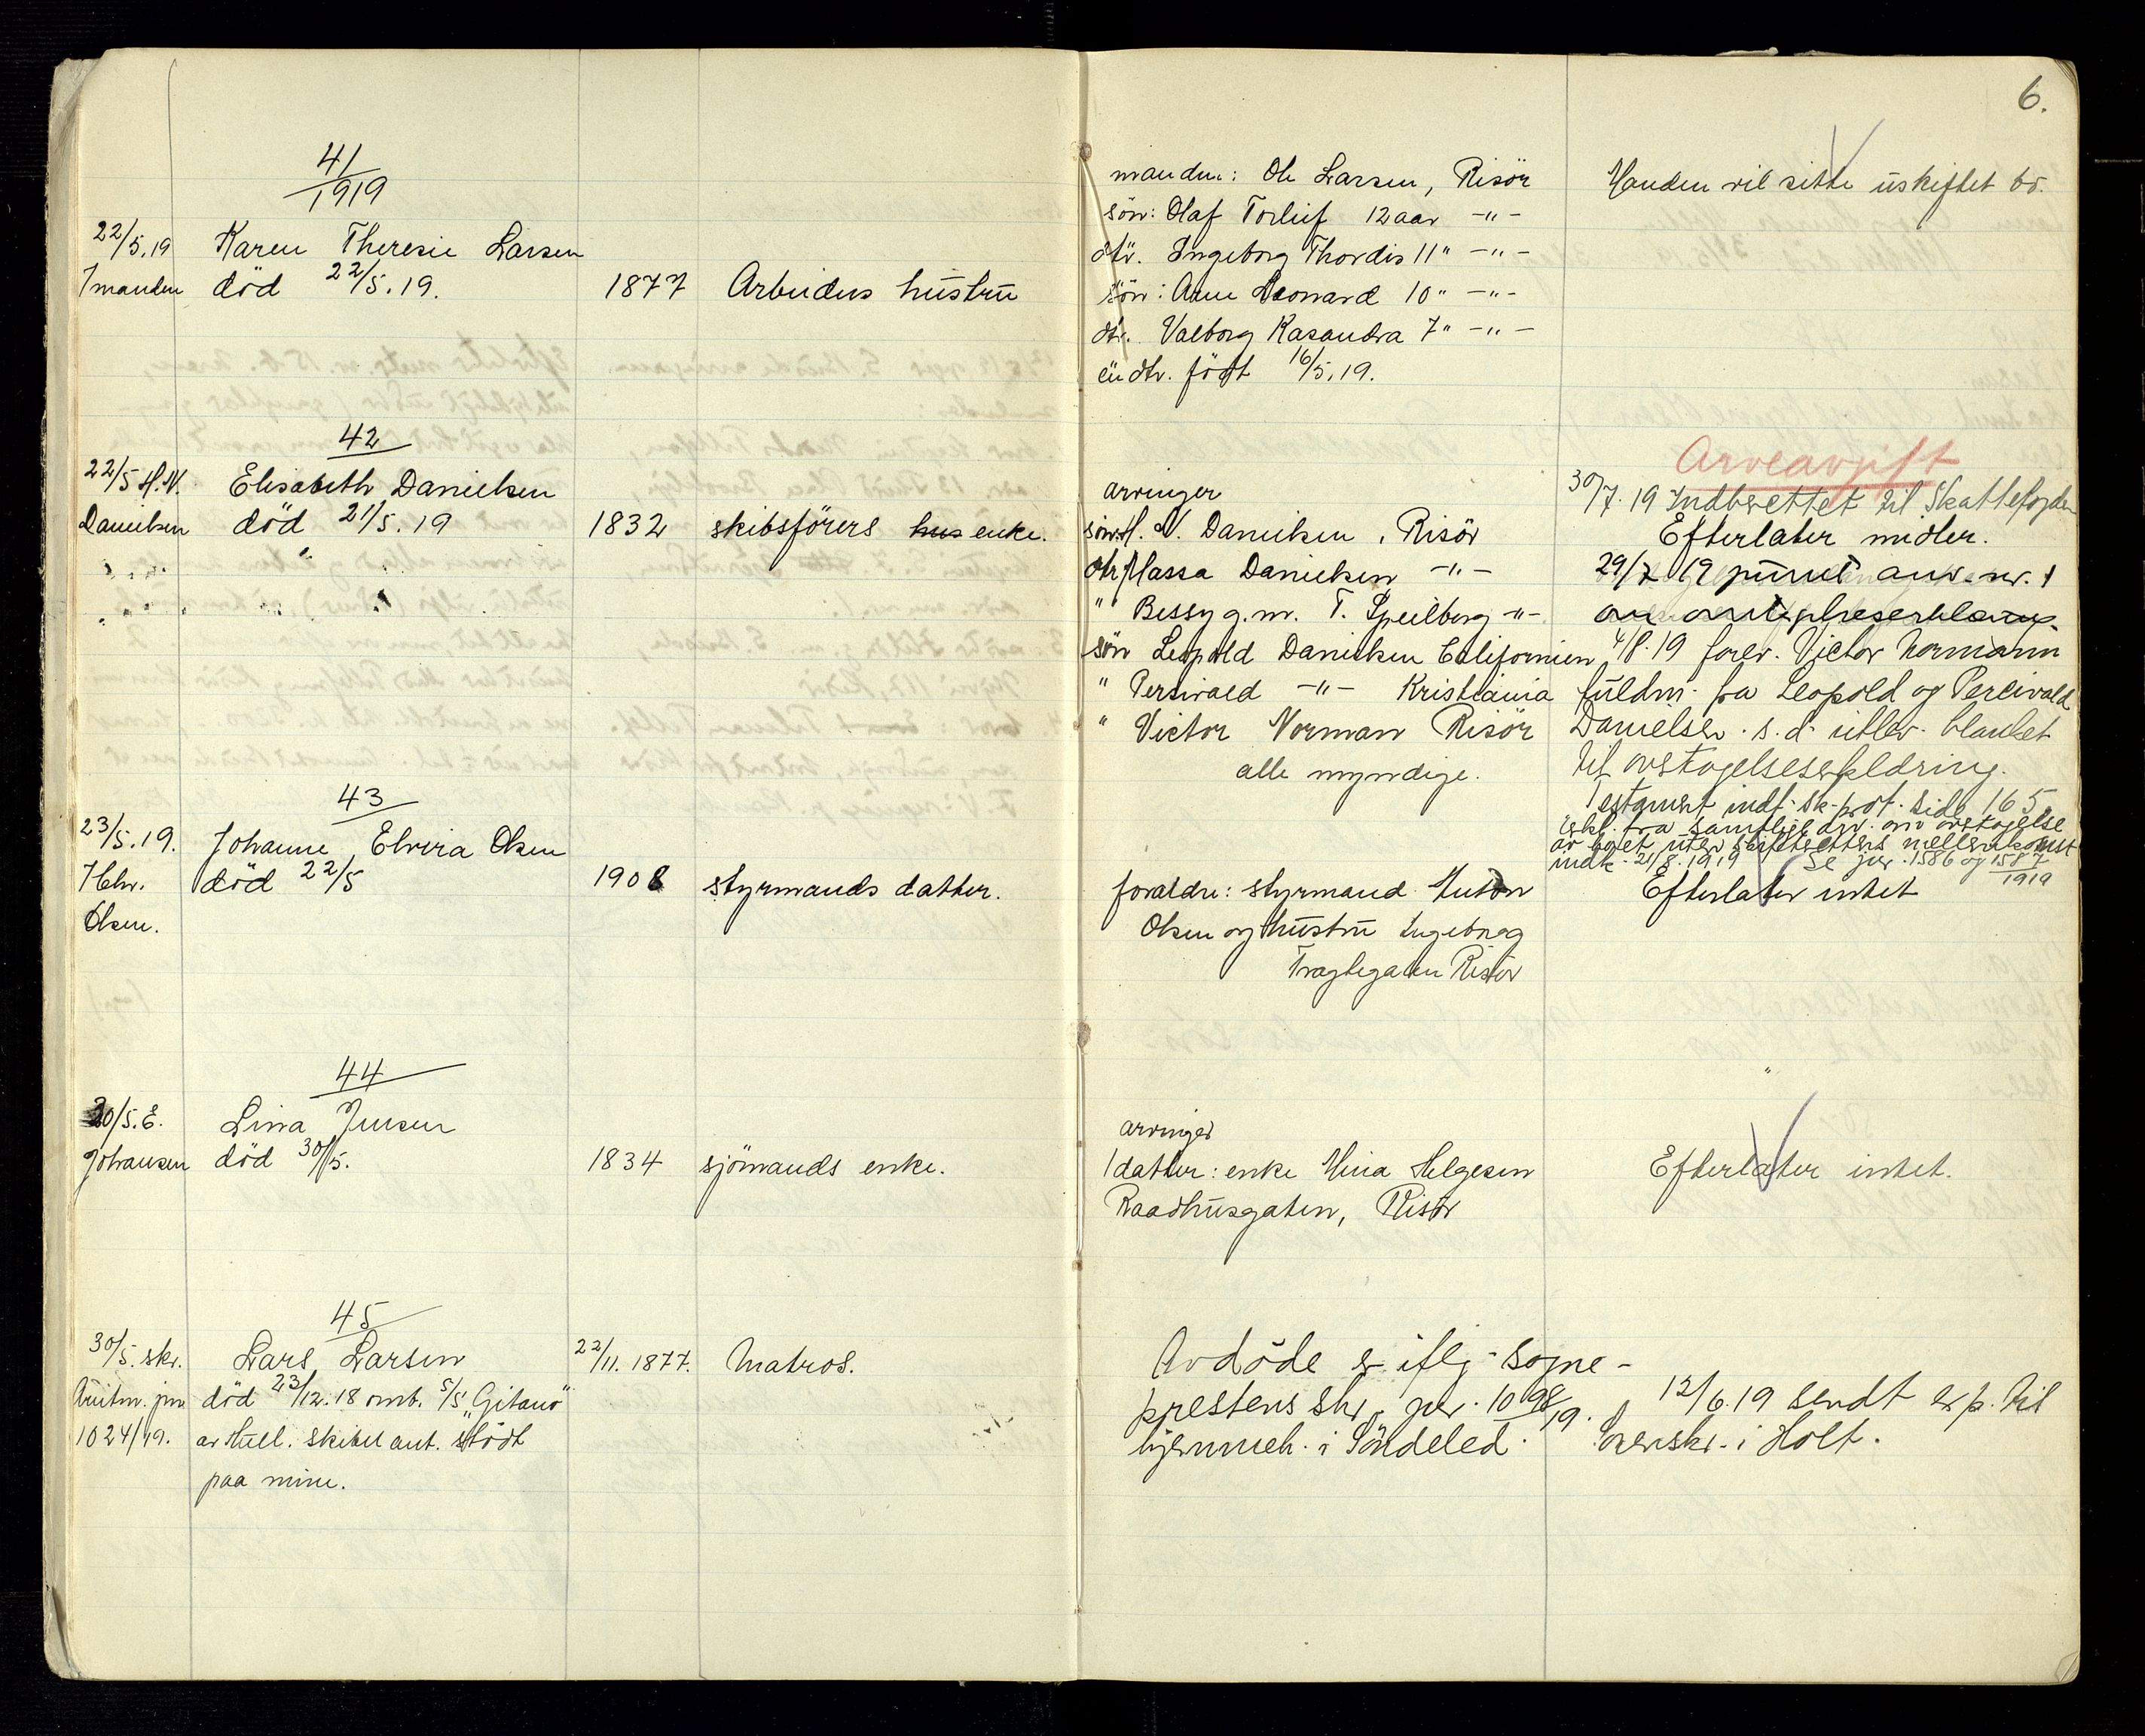 6.
41/1919
22/5.19 Karen Theresie Larsen
/manden død 22/5.19. 1877 Arbeiders hustru
manden: Ole Larsen, Risör
sön: Olaf Torleif 12 aar -"-
dtr. Ingeborg Thordis 11 " -"-
sön: Arne Leonard 10 " -"-
dtr. Valborg Kasandra 7 " -"-
en dtr. födt 16/5.19.
Manden vil sitte i uskiftet bo.
42
22/5 H.N. Elisabeth Danielsen
Danielsen död 21/5.19 1832 skibsförers hus enke.
arvinger
sön H. N. Danielsen, Risör
dtr Massa Danielsen -"-
" Bessy g.m. T. Speilberg -"-
sön Leopold Danielsen Californien
" Persivald -"- Kristiania
" Victor Norman Risör
alle myndige.
Arveavgift
30/7.19 Indberettet til Skattefogden
Efterlater midler.
29/7 19
4/8.19 forev. Victor Normann
fuldm. fra Leopold og Percivald
Danielsen. s.d. utlev. blanket
til overtagelseserklæring.
Testament indf. sk-prot. side 165
Erkl. fra samtlige arv. om overtagelse
av boet uten skifterettens mellemkomst
indk. 21/8.1919 Se jnr. 1586 og 1587/1919
43
23/5.19. Johanne Elvira Olsen
/Chr. död 22/5 1908 styrmands datter.
Olsen.
foreldre: styrmand Anton
Olsen og hustru Ingeborg
Tragtegaten Risör
Efterlater intet
44
30/5. E. Lina Jensen
Johansen död 30/5. 1834 sjömands enke.
arvinger
1 datter: enke Mina Helgesen
Raadhusgaten, Risör
Efterlater intet.
45
30/5. skr. Lars Larsen 22/11.1877. Matros.
jnr död 23/12.18 omb. S/S "Gitano"
1024/19. av Hull. skibet ant. stödt
paa mine.
Avdöde er iflg. sogne-
prestens skr. jnr. 1098/19.
hjemmeh. i Söndeled.
12/6.19 sendt exp. til
Sorenskr. i Holt.